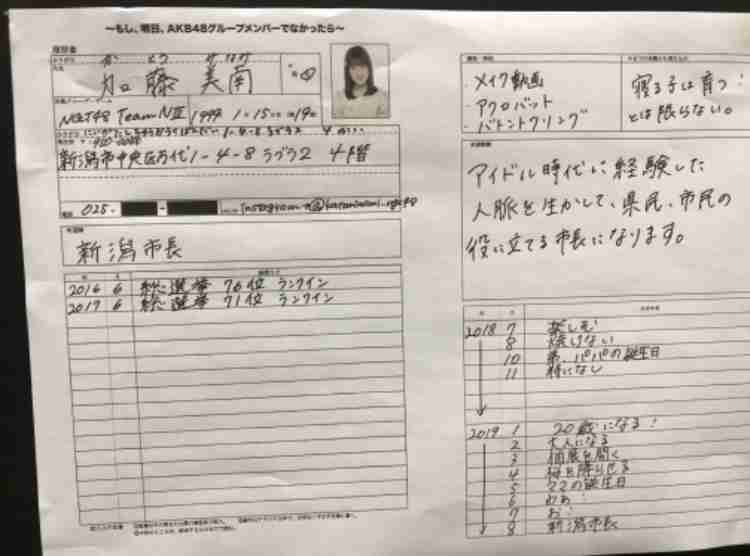 ～もし、明日、AKB48グループメンバーでなかったら～
履歴書
かとう みなみ
加藤 美南
NGT48 Team NⅢ 1999 1・15 19才
新潟市中央区万代1-4-8 ラブラ2 4階
025-
新潟市長
2016 6 総選挙 76位 ランクイン
2017 6 総選挙 71位 ランクイン
・メイク動画
・アクロバット
・バトントワリング
寝る子は育つ!
とは限らない。
アイドル時代に経験した
人脈を生かして、県民、市民の
役に立てる市長になります。
2018 7 楽しむ
8 焼けない
10 弟、パパの誕生日
11 特になし
2019 1 20歳になる!
2 大人になる
3 個展を開く
4 桜を降らせる
5 ママの誕生日
6
7 お!
8 新潟市長